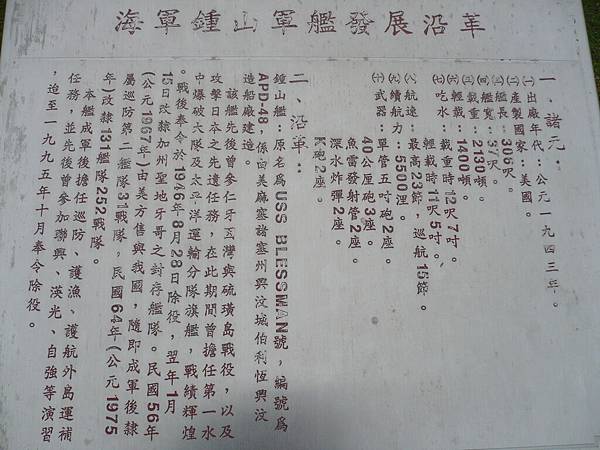 海軍鍾山軍艦發展沿革
一、諸元：
㈠出廠年代：公元一九四三年。
㈡產製國家：美國。
㈢艦長：306呎。
㈣艦寬：37呎。
㈤載重：2130噸。
㈥輕載：1400噸。
㈦吃水：載重時12呎7吋。
輕載時11呎5吋。
㈧航速：最高23節，巡航15節。
㈨續航力：5500浬。
㈩武器：單管五吋砲2座。
40公厘砲3座。
魚雷發射管2座。
深水炸彈2座。
K砲2座。
二、沿革：
鍾山艦：原名為USS BLESSMAN號，編號為
APD-48，係由美麻塞諸塞州興汶城伯利恆興汶
造船廠建造。
該艦先後曾參仁牙因灣與硫磺島戰役，以及
攻擊日本之先遣任務，在此期間曾擔任第一水
中爆破大隊及太平洋運輸分隊旗艦，戰績輝煌
。戰後奉令於1946年8月28日除役，翌年1月
15日改隸加州聖地牙哥之封存艦隊。民國56年
(公元1967年)由美方售與我國，隨即成軍後隸
屬巡防第二艦隊31戰隊，民國64年(公元1975
年)改隸131艦隊252戰隊。
本艦成軍後擔任巡防、護漁、護航外島運補
任務，並先後曾參加聯興、漢光、自強等演習
，迄至一九九五年十月奉令除役。